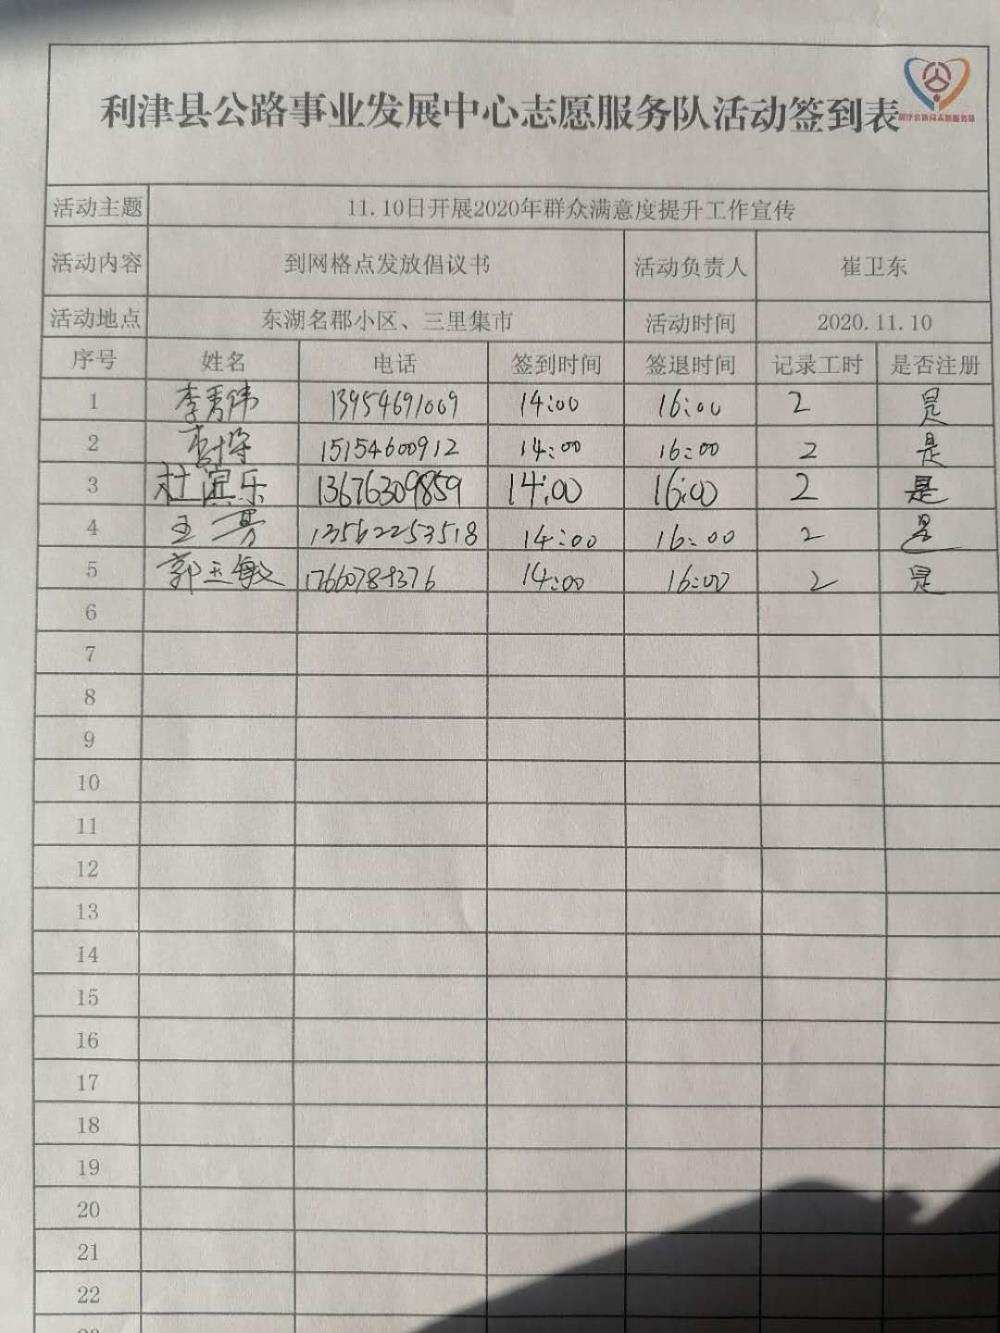 利津县公路事业发展中心志愿服务队活动签到表
活动主题 11.10日开展2020年群众满意度提升工作宣传
活动内容 到网格点发放倡议书 活动负责人 崔卫东
活动地点 东湖名郡小区、三里集市 活动时间 2020.11.10
序号 姓名 电话 签到时间 签退时间 记录工时 是否注册
1 李秀伟 13954691009 14:00 16:00 2 是
2 15154600912 14:00 16:00 2 是
3 杜滨乐 13676309859 14:00 16:00 2 是
4 王芳 13562253518 14:00 16:00 2 是
5 郭玉敏 14:00 16:00 2 是
6
7
8
9
10
11
12
13
14
15
16
17
18
19
20
21
22